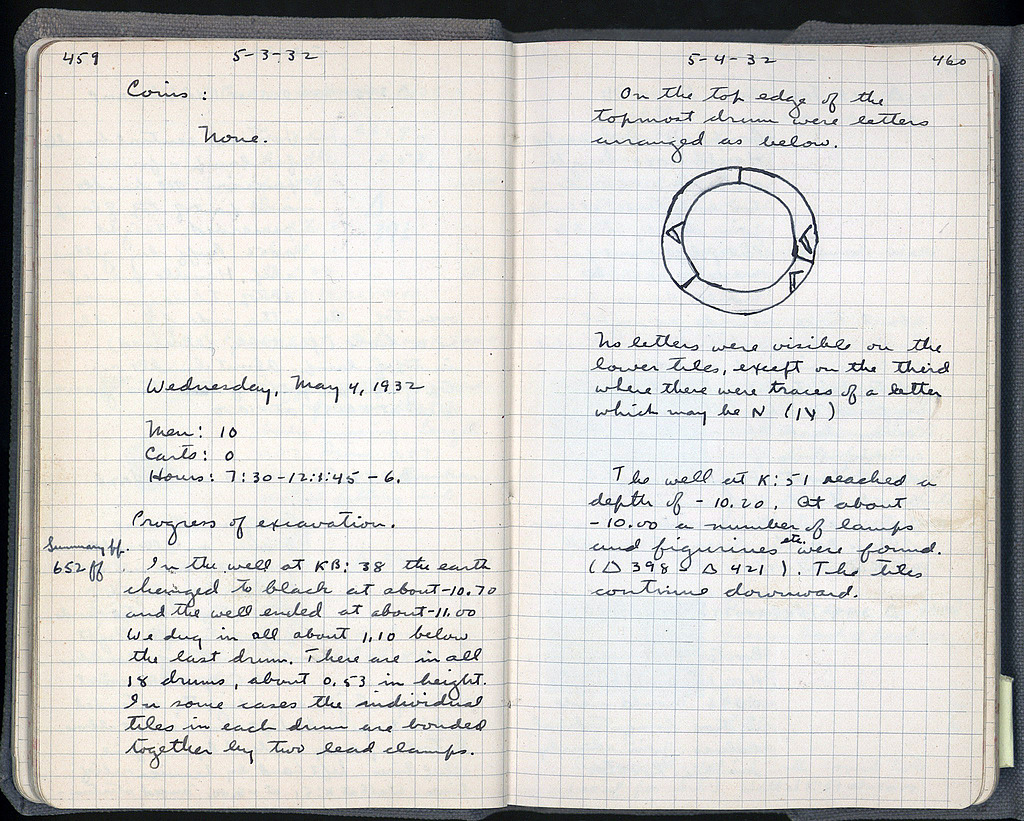 459
5-3-32
Coins :
None.
Wednesday, May 4, 1932
Men: 10
Carts: 0
Hours: 7:30-12:1:45-6.
Progress of excavation.
Summary pp.
652 ff
In the well at KB: 38 the earth
changed to black at about -10.70
and the well ended at about -11.00
We dug in all about 1.10 below
the last drum. There are in all
18 drums, about 0.53 in height.
In some cases the individual
tiles in each drum are bonded
together by two lead clamps.
5-4-32
460
On the top edge of the
topmost drum were letters
arranged as below.
Δ
Δ
Γ
No letters were visible on the
lower tiles, except on the third
where there were traces of a letter
which may be N (IV)
The well at K: 51 reached a
depth of -10.20. At about
-10.00 a number of lamps
and figurines etc. were found.
(Δ 398 - Δ 421). The tiles
continue downward.